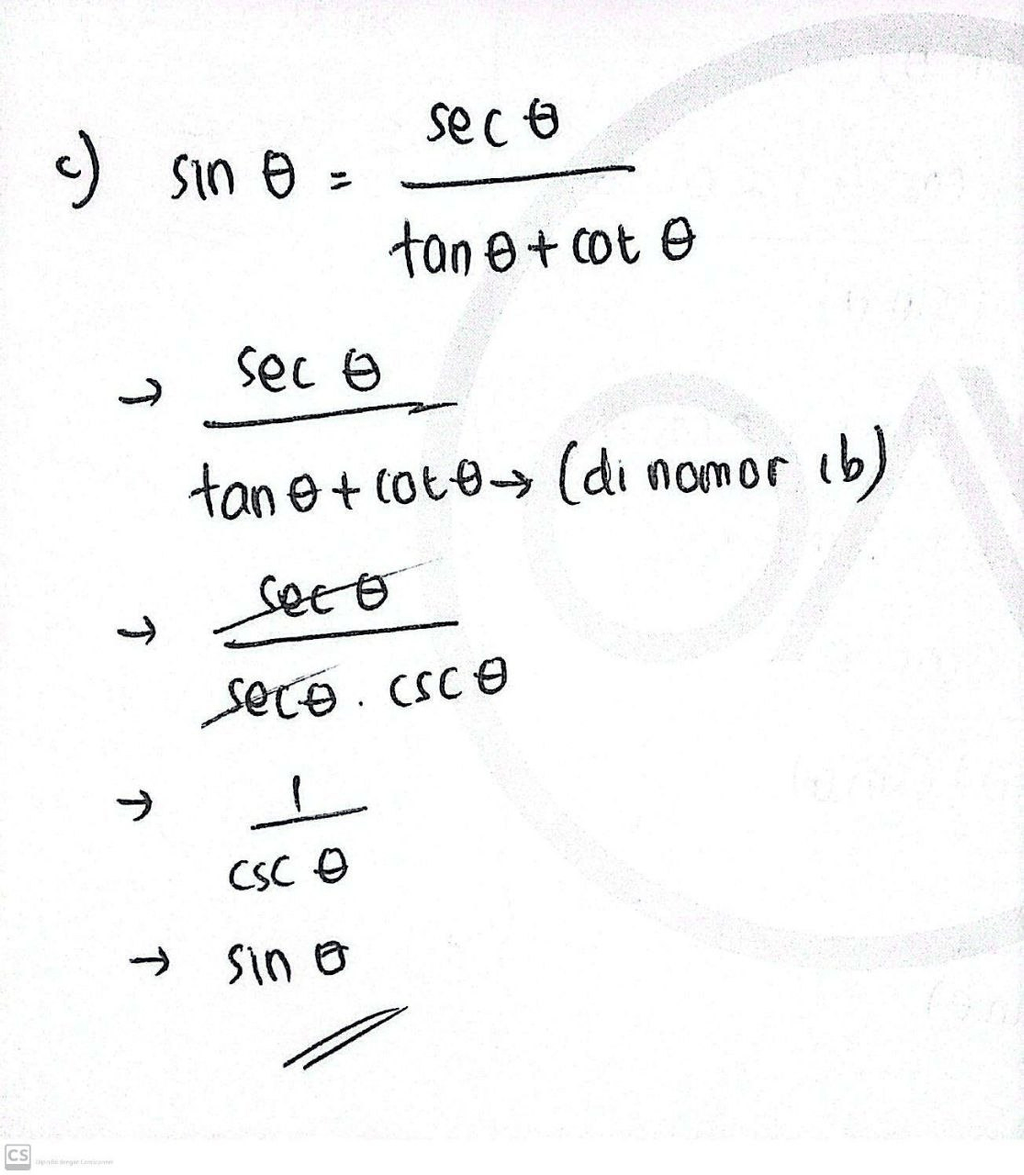 c) sin θ = sec θ
tan θ + cot θ
→ sec θ
tan θ + cot θ → (di nomor 1b)
→ sec θ
sec θ . csc θ
→ 1
csc θ
→ sin θ
CS